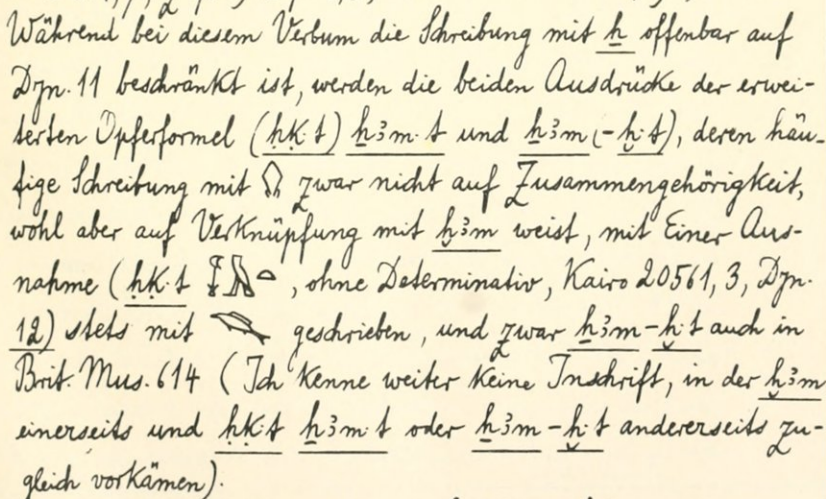 Während bei diesem Verbum die Schreibung mit ẖ offenbar auf
Dyn. 11 beschränkt ist, werden die beiden Ausdrücke der erwei-
terten Opferformel (ḥḳ·t) ẖꜣm·t und ẖꜣm(-ḫ·t), deren häu-
fige Schreibung mit zwar nicht auf Zusammengehörigkeit,
wohl aber auf Verknüpfung mit ḫꜣm weist, mit Einer Aus-
nahme (ḥḳ·t , ohne Determinativ, Kairo 20561, 3, Dyn.
12) stets mit 𓆞 geschrieben, und zwar ẖꜣm-ḫ·t auch in
Brit. Mus. 614 (Ich kenne weiter keine Inschrift, in der ḫꜣm
einerseits und ḥḳ·t ẖꜣm·t oder ẖꜣm-ḫ·t andererseits zu-
gleich vorkämen).